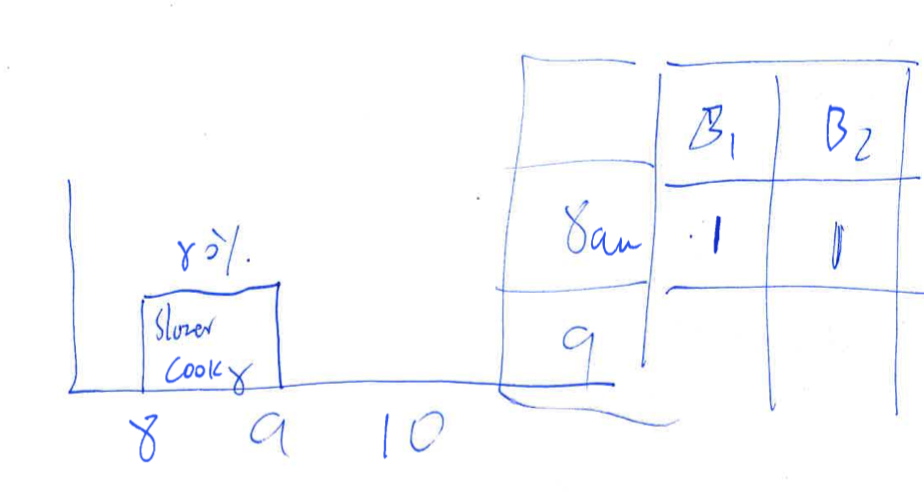 80%.
Slower
Cook
8 9 10
B1 B2
8am 1 1
9